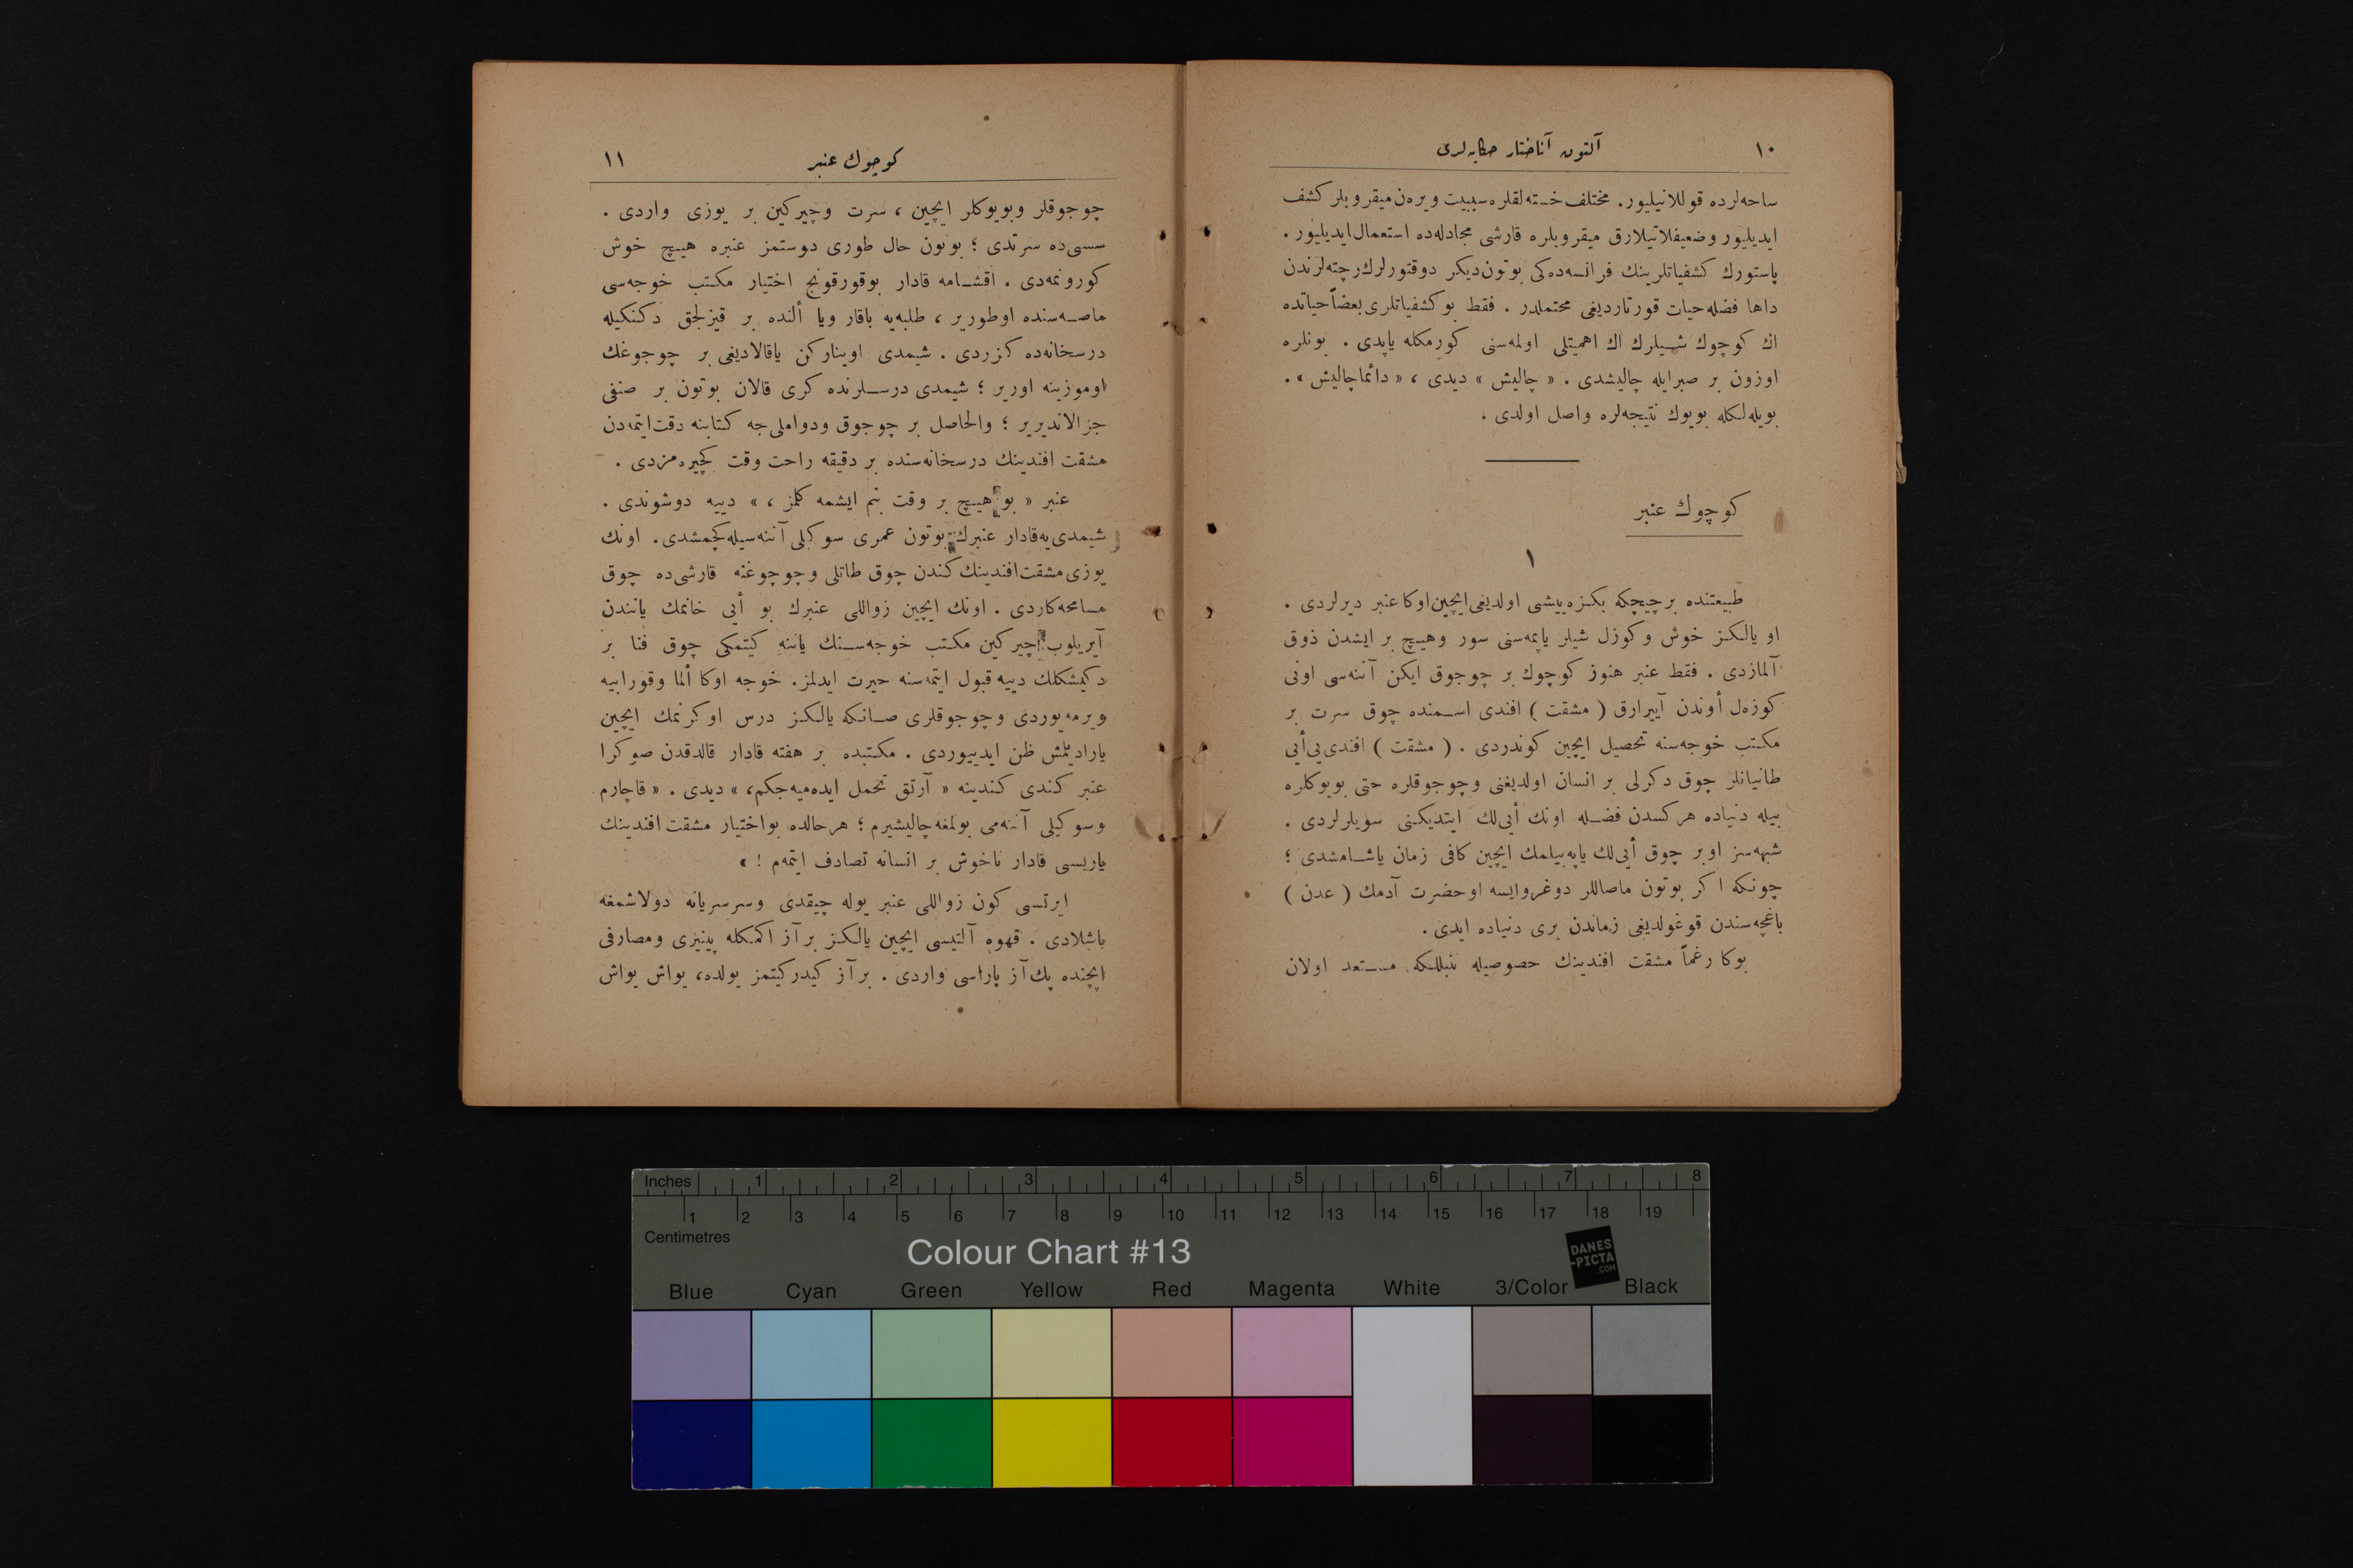 ١٠
آلتون آناختار حكايه‌لرى
ساحه‌لرده قوللانیلیور. مختلف خسته‌لقلره سببیت ویره‌ن میقروبلر كشف
ایدیلیور وضعیفلاتیلارق میقروبلره قارشی مجادله‌ده استعمال ایدیلیور.
پاستورك كشفیاتلرینك فرانسه‌ده‌كی بوتون دیكر دوقتورلرك رچته‌لرندن
داها فضله حیات قورتاردیغی محتملدر. فقط بو كشفیاتلری بعضاً حیاتده
اك كوچوك شیلرك اك اهمیتلی اولمه‌سنی كورمكله یاپدی. بونلره
اوزون بر صبرایله چالیشدی. « چالیش » دیدی، « دائما چالیش ».
بویله‌لكله بویوك نتیجه‌لره واصل اولدی.
كوچوك عنبر
١
طبیعتنده برچیچكه بكزه‌ییشی اولدیغی ایچین اوكا عنبر دیرلردی.
او یالكز خوش وكوزل شیلر یاپمه‌سنی سور وهیچ بر ایشدن ذوق
آلمازدی. فقط عنبر هنوز كوچوك بر چوجوق ایكن آننه‌سی اونی
كوزه‌ل أوندن آییرارق ( مشقت ) افندی اسمنده چوق سرت بر
مكتب خوجه‌سنه تحصیل ایچین كوندردی. ( مشقت ) افندی‌یی أیی
طانیانلر چوق دكرلی بر انسان اولدیغنی وچوجوقلره حتی بویوكلره
بیله دنیاده هركسدن فضله اونك أییلك ایتدیكنی سویلرلردی.
شبهه‌سز اوبر چوق أییلك یاپه‌بیلمك ایچین كافی زمان یاشامشدی؛
چونكه اكر بوتون ماصاللر دوغروایسه اوحضرت آدمك ( عدن )
باغچه‌سندن قوغولدیغی زماندن بری دنیاده ایدی.
بوكا رغماً مشقت افندینك حصوصیله تنبللكه مستعد اولان
كوچوك عنبر
١١
چوجوقلر وبویوكلر ایچین، سرت وچیركین بر یوزی واردی.
سسی‌ده سرتدی؛ بوتون حال طوری دوستمز عنبره هیچ خوش
كورونمه‌دی. اقشامه قادار بوقورقونج اختیار مكتب خوجه‌سی
ماصه‌سنده اوطوریر، طلبه‌یه باقار ویا ألنده بر قیزلجق دكنكیله
درسخانه‌ده كزردی. شیمدی اویناركن یاقالادیغی بر چوجوغك
اوموزینه اوریر؛ شیمدی درسلرنده كری قالان بوتون بر صنفی
جزالاندیریر؛ والحاصل بر چوجوق ودواملی‌جه كتابنه دقت ایتمه‌دن
مشقت افندینك درسخانه‌سنده بر دقیقه راحت وقت كچیره‌مزدی.
عنبر « بو هیچ بر وقت بنم ایشمه كلمز، » دییه دوشوندی.
شیمدی‌یه قادار عنبرك بوتون عمری سوكیلی آننه‌سیله كچمشدی. اونك
یوزی مشقت افندینك كندن چوق طاتلی وچوجوغنه قارشی‌ده چوق
مسامحه‌كاردی. اونك ایچین زواللی عنبرك بو أیی خانمك یانندن
آیریلوب چیركین مكتب خوجه‌سنك یاننه كیتمكی چوق فنا بر
دكیشكلك دییه قبول ایتمه‌سنه حیرت ایدلمز. خوجه اوكا ألما وقورابیه
ویرمه‌یوردی وچوجوقلری صانكه یالكز درس اوكرنمك ایچین
یارادیلمش ظن ایدییوردی. مكتبده بر هفته قادار قالدقدن صوكرا
عنبر كندی كندینه « آرتق تحمل ایده‌میه‌جكم، » دیدی. « قاچارم
وسوكیلی آننه‌می بولمغه چالیشیرم؛ هرحالده بواختیار مشقت افندینك
یاریسی قادار ناخوش بر انسانه تصادف ایتمه‌م! »
ایرتسی كون زواللی عنبر یوله چیقدی وسرسریانه دولاشمغه
باشلادی. قهوه آلتیسی ایچین یالكز برآز اكمكله پینیری ومصارفی
ایچنده پك آز پاراسی واردی. برآز كیدركیتمز یولده، یواش یواش
Inches 1 2 3 4 5 6 7 8
1 2 3 4 5 6 7 8 9 10 11 12 13 14 15 16 17 18 19
Centimetres
Colour Chart #13
DANES
-PICTA
.COM
Blue Cyan Green Yellow Red Magenta White 3/Color Black